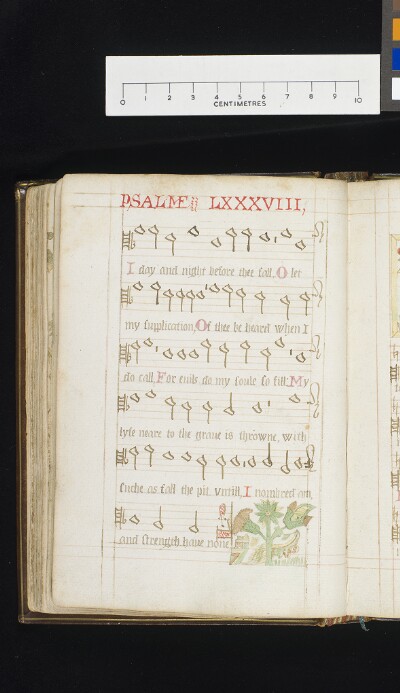 0 1 2 3 4 5 6 7 8 9 10
CENTIMETRES
PSALME LXXXVIII,
I day and night before thee fall, O let
my supplication, Of thee be heard when I
do call, For euils do my soule so fill: My
lyfe neare to the graue is throwne, with
suche as fall the pit vntill, I nombred am,
and strength haue none